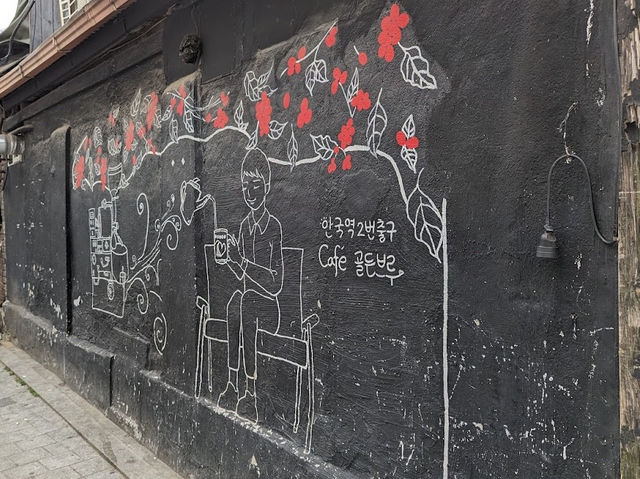 한국역2번출구
Cafe 골든브루